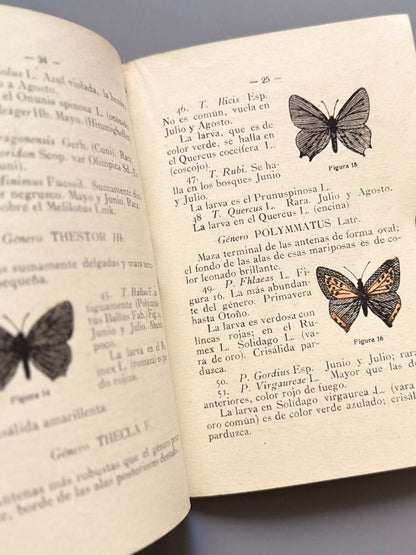 — 24 —
olus L. Azul violada, la hembra
o a Agosto.
el Ononis spinosa L. (onon
leager Hb. Mayo. (Himmighoffen
ragonensis Gerh. (Cuní). Rara.
oridon Scop. var Olimpica Sd. J.
uní).
Minimus Fuessl. Sumamente dimi
or negrusco. Mayo y Junio. Rara
sobre el Metilotus Link.
Género THESTOR Hb.
as sumamente delgadas y maza ter
pequeña.
45. T. Ballus F
tiguamente (Polyom
tus Ballus Fab.) Fig.
Junio y Julio. Much
poco.
La larva en el R
mex L. (romana) y
do rojiza.
Figura 14
sálida amarillenta.
Género THECLA F.
antenas más robustas que el género
re, borde de las alas posteriores dentado
— 25 —
46. T. Ilicis Esp.
No es común, vuela en
Julio y Agosto.
La larva, que es de
color verde, se halla en
el Quercus coccifera L.
(coscojo).
47. T. Rubi. Se ha-
lla en los bosques Junio
y Julio.
Figura 15
La larva es el Prunuspinosa L.
48 T. Quercus L. Rara. Julio y Agosto.
La larva en el Quercus L. (encina)
Género POLYMMATUS Latr.
Maza terminal de las antenas de forma oval;
el fondo de las alas de esas mariposas es de co-
lor leonado brillante.
49. P. Fhlaeas L. Fi-
gura 16. La más abundan-
te del género. Primavera
hasta Otoño.
La larva es verdosa con
líneas rojas; en el Ru-
mex L. Solidago L. (va-
ra de oro). Crisálida par-
duzca.
Figura 16
50. P. Gordius Esp. Junio y Julio; rara
51. P. Virgaureae L. Mayor que las de
anteriores, color rojo de fuego.
La larva en Solidago virgaurea L. (vara
oro común) es de color verde azulado; crisál
parduzca.